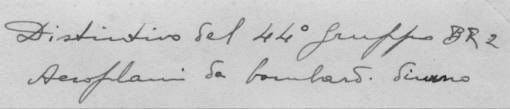 Distintivo del 44° gruppo BR 2
Aeroplani da bombard. diurno